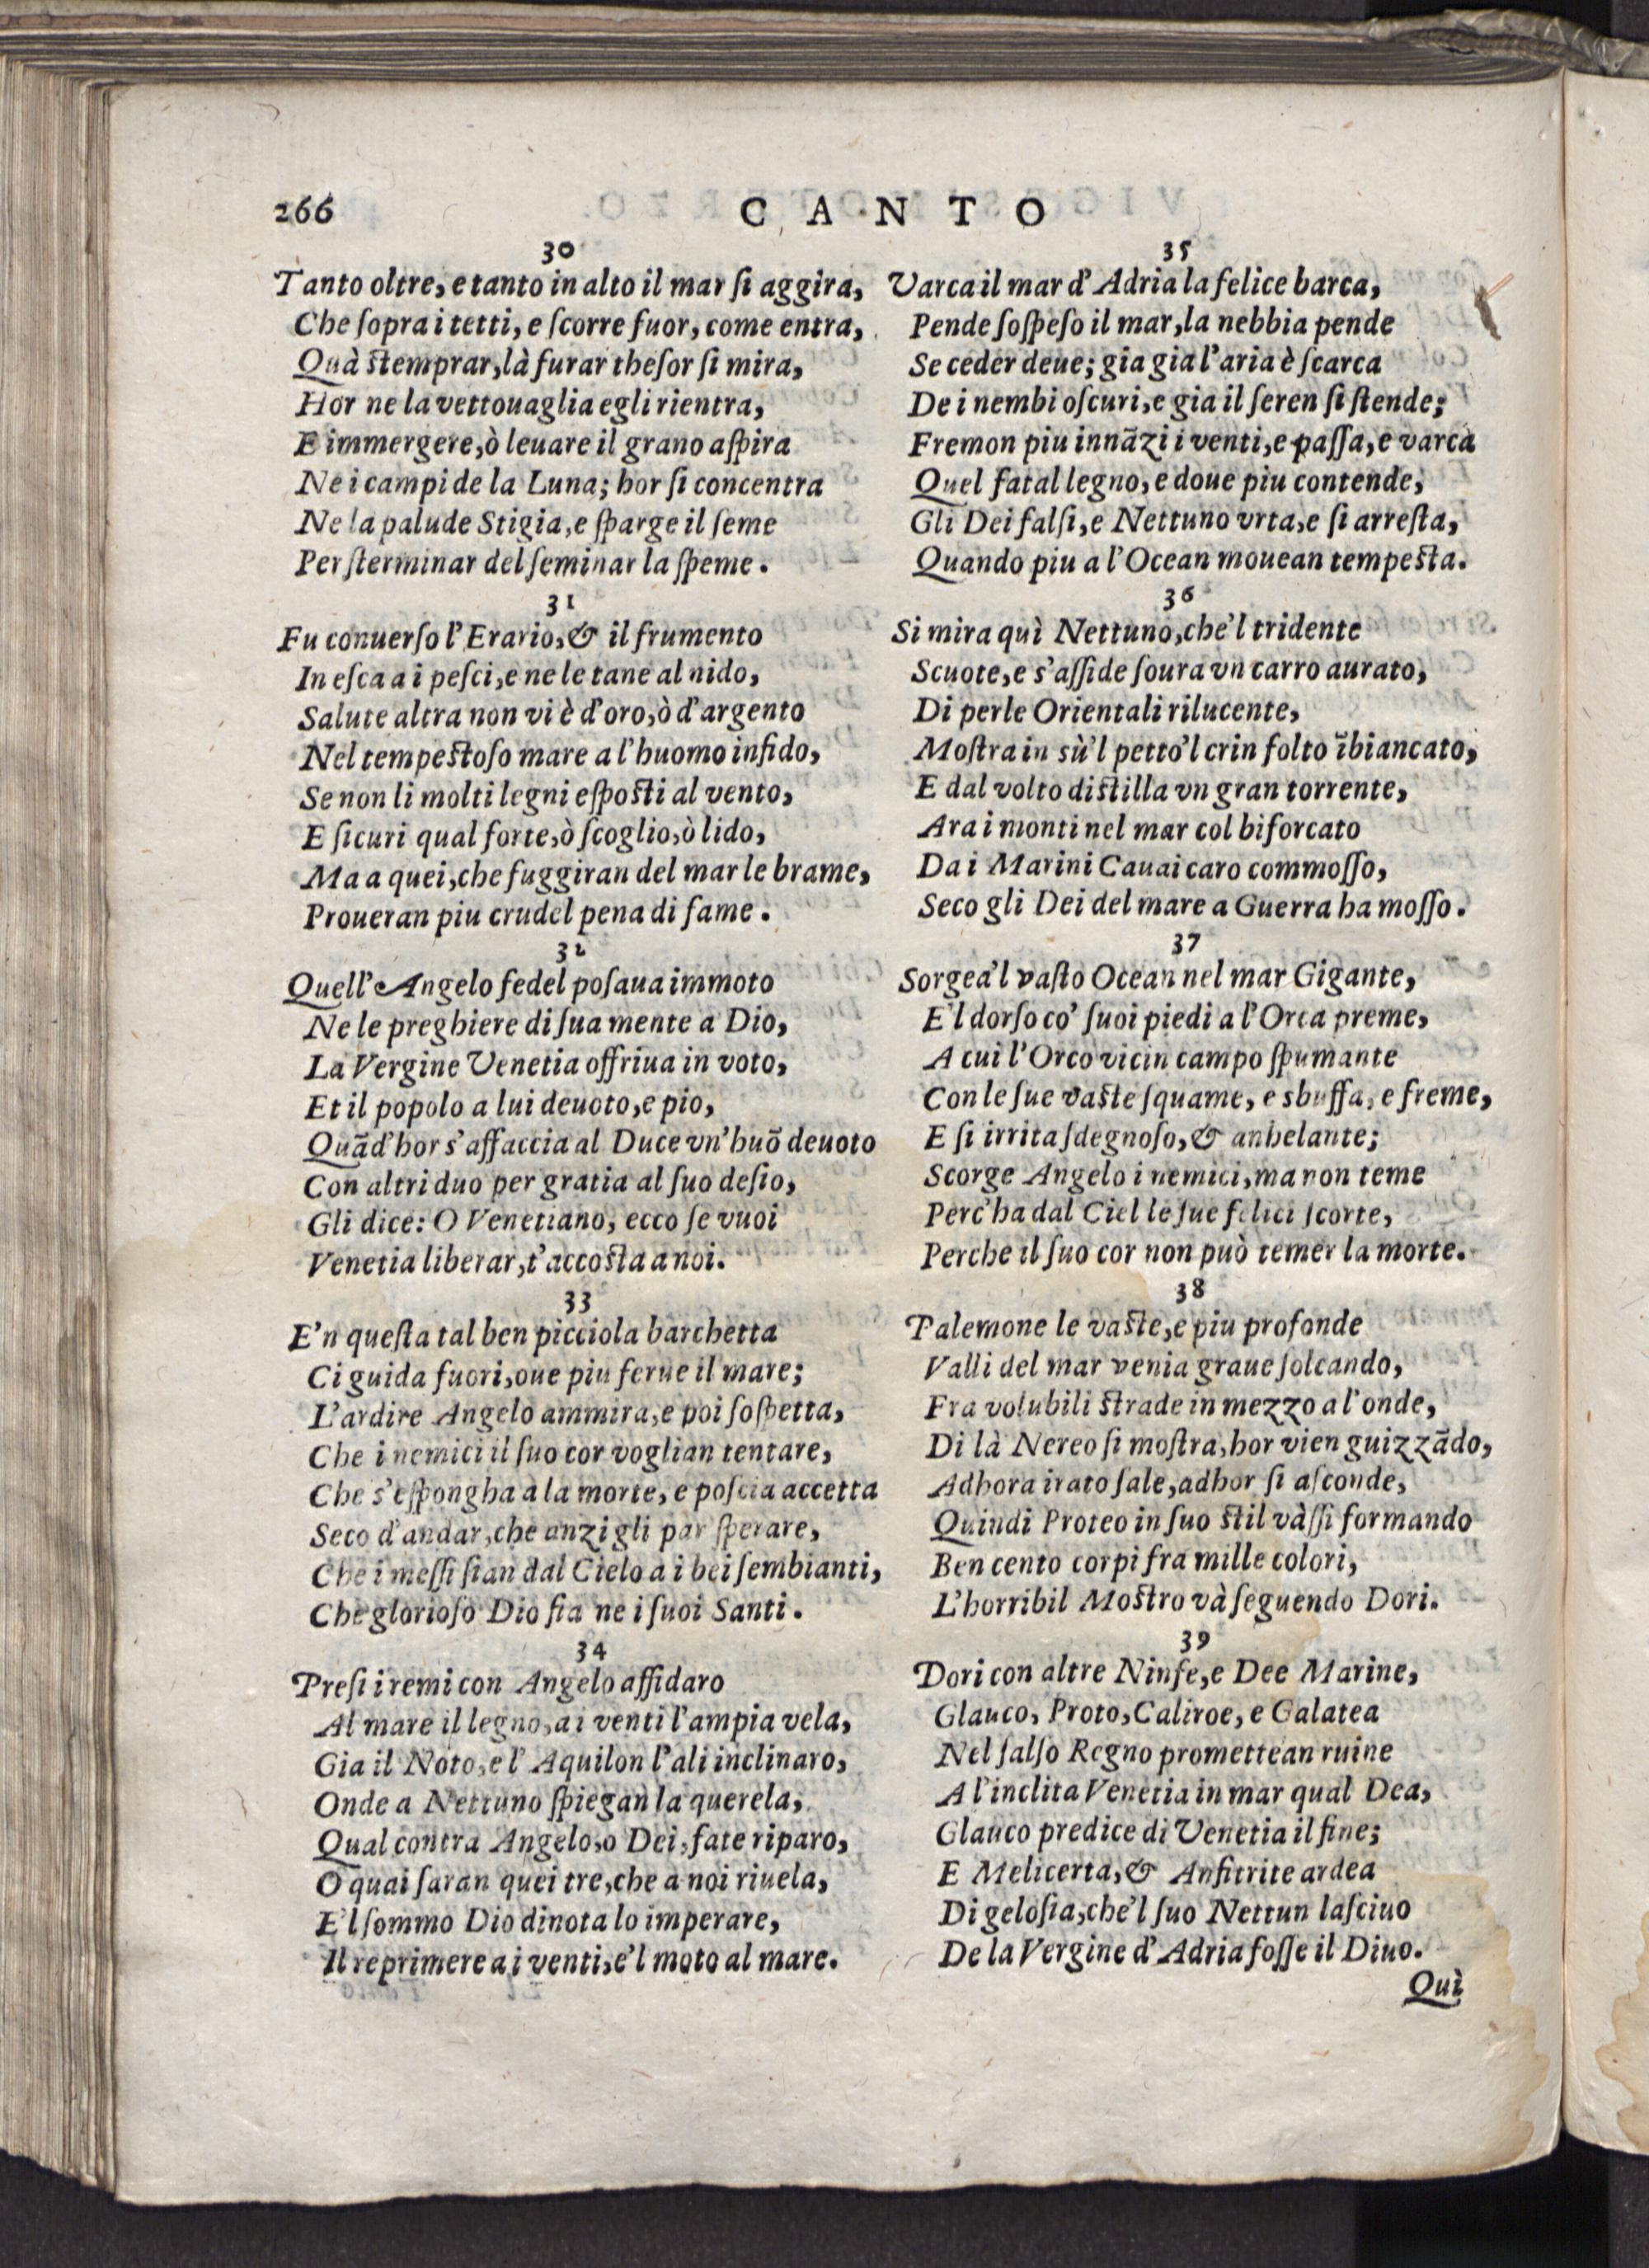 266
CANTO
30
Tanto oltre, e tanto in alto il mar ſi aggira,
Che ſopra i tetti, e ſcorre fuor, come entra,
Quà ſtemprar, là furar theſor ſi mira,
Hor ne la vettouaglia egli rientra,
E immergere, ò leuare il grano aſpira
Ne i campi de la Luna; hor ſi concentra
Ne la palude Stigia, e ſparge il ſeme
Per ſterminar del ſeminar la ſpeme.
31
Fu conuerſo l'Erario, & il frumento
In eſca a i peſci, e ne le tane al nido,
Salute altra non vi è d'oro, ò d'argento
Nel tempeſtoſo mare a l'huomo infido,
Se non li molti legni eſpoſti al vento,
E ſicuri qual forte, ò ſcoglio, ò lido,
Ma a quei, che fuggiran del mar le brame,
Proueran piu crudel pena di fame.
32
Quell'Angelo fedel poſaua immoto
Ne le preghiere di ſua mente a Dio,
La Vergine Venetia offriua in voto,
Et il popolo a lui deuoto, e pio,
Quãd'hor s'affaccia al Duce vn'huõ deuoto
Con altri duo per gratia al ſuo deſio,
Gli dice: O Venetiano, ecco ſe vuoi
Venetia liberar, t'accoſta a noi.
33
E'n queſta tal ben picciola barchetta
Ci guida fuori, oue piu ferue il mare;
L'ardire Angelo ammira, e poi ſoſpetta,
Che i nemici il ſuo cor voglian tentare,
Che s'eſpongha a la morte, e poſcia accetta
Seco d'andar, che anzi gli par ſperare,
Che i meſſi ſian dal Cielo a i bei ſembianti,
Che glorioſo Dio ſia ne i ſuoi Santi.
34
Preſi i remi con Angelo affidaro
Al mare il legno, a i venti l'ampia vela,
Gia il Noto, e l'Aquilon l'ali inclinaro,
Onde a Nettuno ſpiegan la querela,
Qual contra Angelo, o Dei, fate riparo,
O quai ſaran quei tre, che a noi riuela,
E'l ſommo Dio dinota lo imperare,
Il reprimere a i venti, e'l moto al mare.
35
Varca il mar d'Adria la felice barca,
Pende ſoſpeſo il mar, la nebbia pende
Se ceder deue; gia gia l'aria è ſcarca
De i nembi oſcuri, e gia il ſeren ſi ſtende;
Fremon piu innãzi i venti, e paſſa, e varca
Quel fatal legno, e doue piu contende,
Gli Dei falſi, e Nettuno vrta, e ſi arreſta,
Quando piu a l'Ocean mouean tempeſta.
36
Si mira quì Nettuno, che'l tridente
Scuote, e s'aſſide ſoura vn carro aurato,
Di perle Orientali rilucente,
Moſtra in sù'l petto'l crin folto ĩbiancato,
E dal volto diſtilla vn gran torrente,
Ara i monti nel mar col biforcato
Da i Marini Cauai caro commoſſo,
Seco gli Dei del mare a Guerra ha moſſo.
37
Sorgea'l vaſto Ocean nel mar Gigante,
E'l dorſo co' ſuoi piedi a l'Orca preme,
A cui l'Orco vicin campo ſpumante
Con le ſue vaſte ſquame, e sbuffa, e freme,
E ſi irrita ſdegnoſo, & anhelante;
Scorge Angelo i nemici, ma non teme
Perc'ha dal Ciel le ſue felici ſcorte,
Perche il ſuo cor non può temer la morte.
38
Palemone le vaſte, e piu profonde
Valli del mar venia graue ſolcando,
Fra volubili ſtrade in mezzo a l'onde,
Di là Nereo ſi moſtra, hor vien guizzãdo,
Adhora irato ſale, adhor ſi aſconde,
Quindi Proteo in ſuo ſtil vàſſi formando
Ben cento corpi fra mille colori,
L'horribil Moſtro và ſeguendo Dori.
39
Dori con altre Ninfe, e Dee Marine,
Glauco, Proto, Caliroe, e Galatea
Nel ſalſo Regno promettean ruine
A l'inclita Venetia in mar qual Dea,
Glauco predice di Venetia il fine;
E Melicerta, & Anfitrite ardea
Di geloſia, che'l ſuo Nettun laſciuo
De la Vergine d'Adria foſſe il Diuo.
Quì